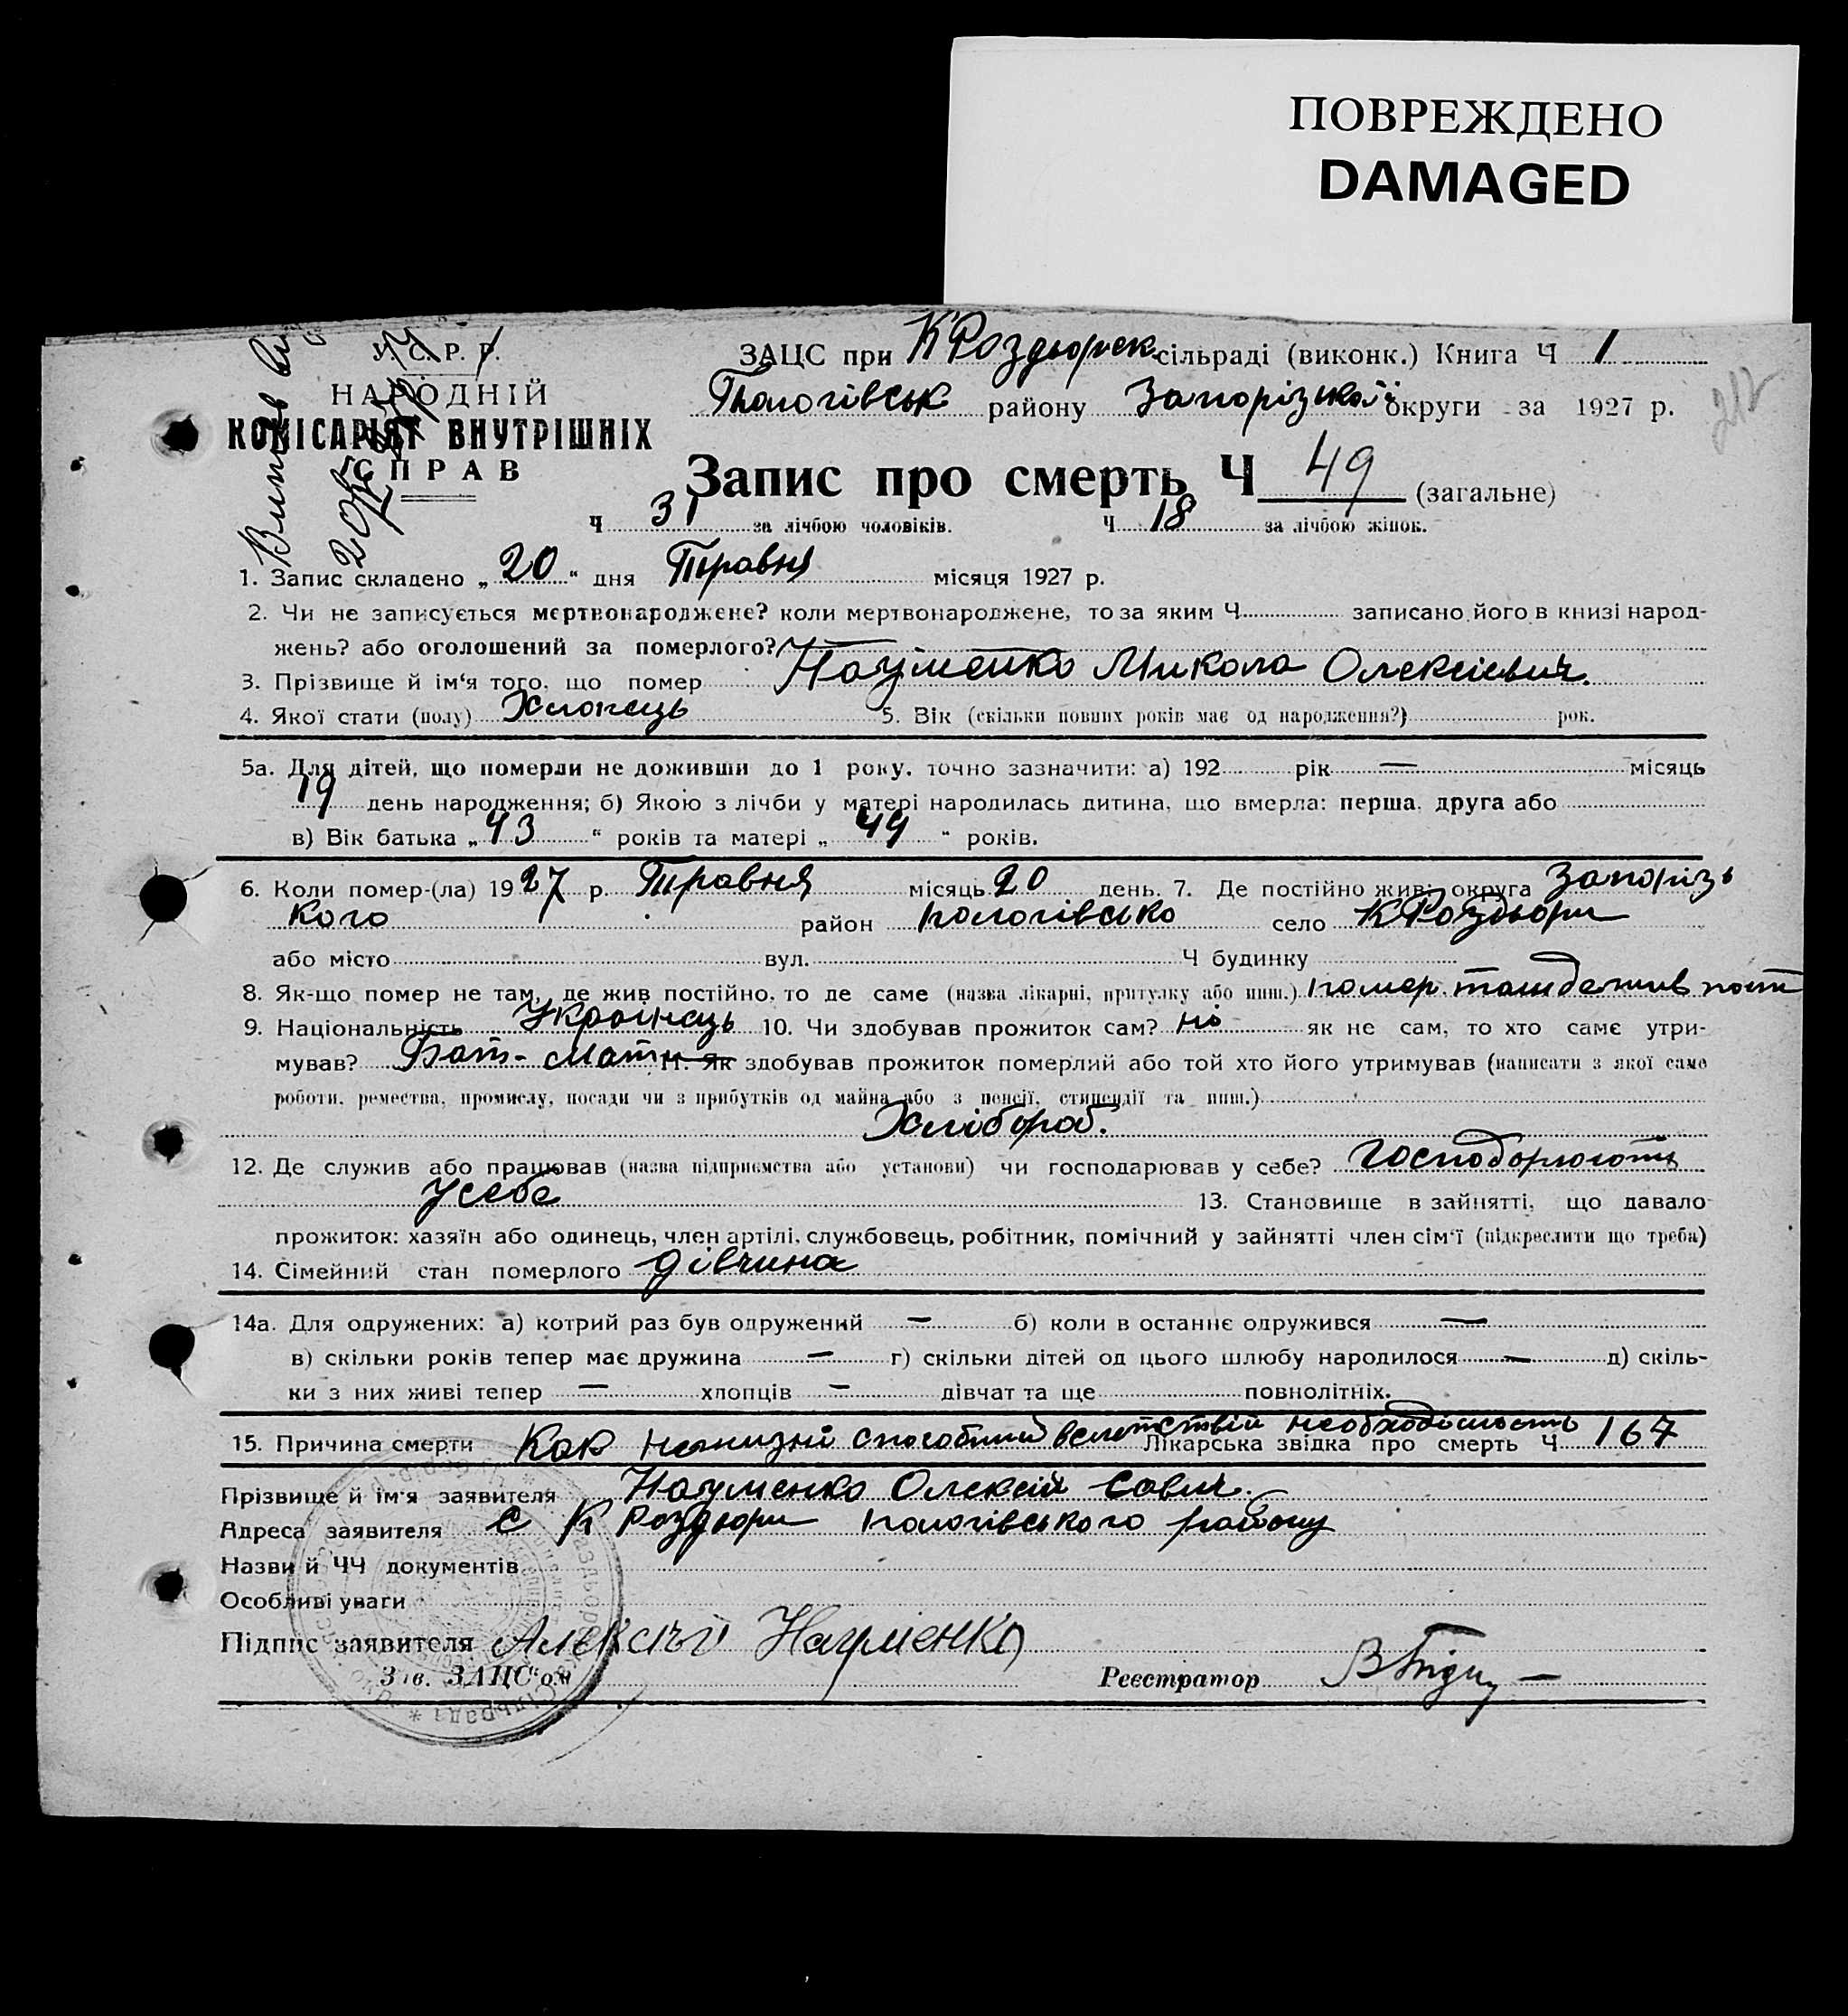 ПОВРЕЖДЕНО
DAMAGED
У. С. Р. Р.
НАРОДНІЙ
КОМІСАРІЯТ ВНУТРІШНІХ
СПРАВ
ЗАЦС при К Роздорск сільраді (виконк.) Книга Ч 1
Пологівськ району Запорізької округи за 1927 р.
212
Запис про смерть Ч 49 (загальне)
Ч 31 за лічбою чоловіків. Ч 18 за лічбою жінок.
1. Запис складено „20“ дня Травня місяця 1927 р.
2. Чи не записується мертвонароджене? коли мертвонароджене, то за яким Ч записано його в книзі народ-
жень? або оголошений за померлого?
3. Прізвище й ім'я того, що помер Науменко Микола Олексієвич.
4. Якої стати (полу) Хлопець 5. Вік (скільки повних років має од народження?) рок.
5а. Для дітей, що померли не доживши до 1 року, точно зазначити: а) 192 рік — місяць
19 день народження; б) Якою з лічби у матері народилась дитина, що вмерла: перша, друга або
в) Вік батька „43“ років та матері „44“ років.
6. Коли помер-(ла) 1927 р. Травня місяць 20 день. 7. Де постійно жив: округа Запорізь
кого район пологівсько село К Роздьори
або місто вул. Ч будинку
8. Як-що помер не там, де жив постійно, то де саме (назва лікарні, притулку або инш.) помер там де жив пост
9. Національність Українець 10. Чи здобував прожиток сам? ні як не сам, то хто саме утри-
мував? Бат- мат 11. Як здобував прожиток померлий або той хто його утримував (написати з якої саме
роботи, ремества, промислу, посади чи з прибутків од майна або з пенсії, стипендії та инш.)
Хлібороб.
12. Де служив або працював (назва підприємства або установи) чи господарював у себе? господарюють
У себе 13. Становище в зайнятті, що давало
прожиток: хазяїн або одинець, член артілі, службовець, робітник, помічний у зайнятті член сім'ї (підкреслити що треба)
14. Сімейний стан померлого дівчина
14а. Для одружених: а) котрий раз був одружений — б) коли в останнє одружився —
в) скільки років тепер має дружина — г) скільки дітей од цього шлюбу народилося — д) скіль-
ки з них живі тепер — хлопців — дівчат та ще повнолітніх.
15. Причина смерти Как Лікарська звідка про смерть Ч 167
Прізвище й ім'я заявителя Науменко Олексій Савич.
Адреса заявителя с К Роздьори пологівського району
Назви й ЧЧ документів
Особливі уваги
Підпис заявителя Алексєй Науменко
Зав. ЗАЦС'ом Реєстратор